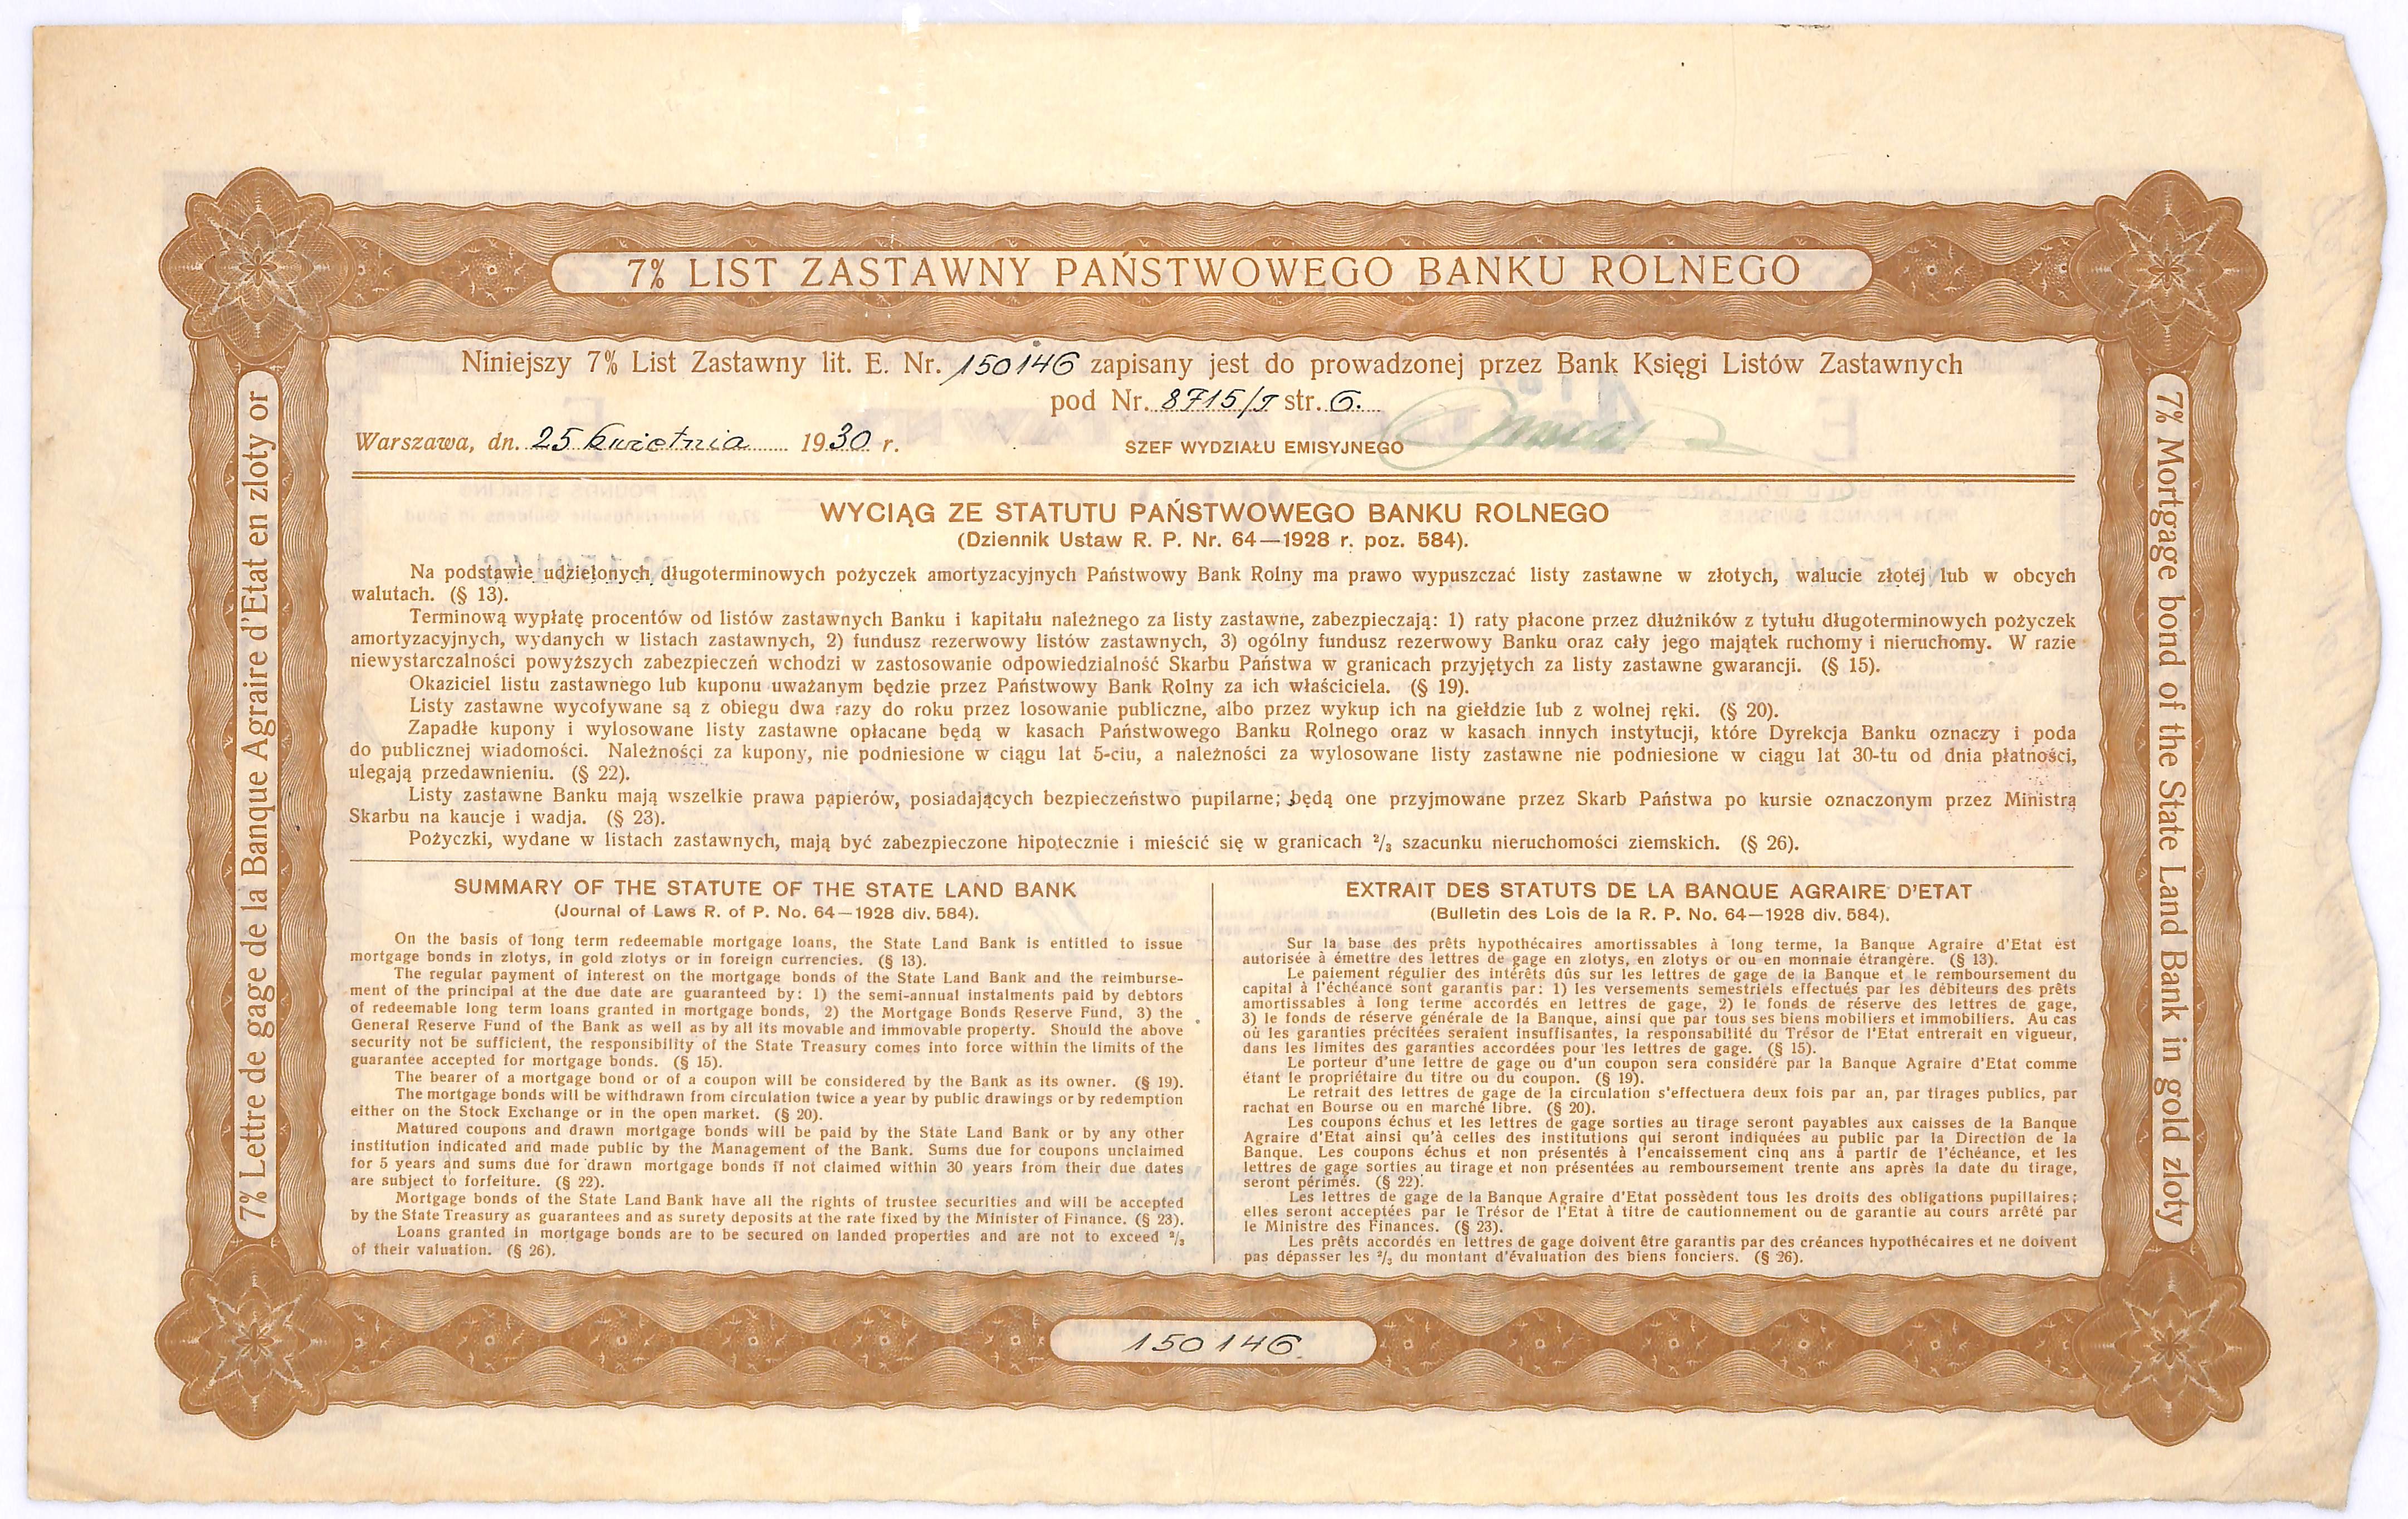 7% LIST ZASTAWNY PAŃSTWOWEGO BANKU ROLNEGO
Niniejszy 7% List Zastawny lit. E. Nr. 150146 zapisany jest do prowadzonej przez Bank Księgi Listów Zastawnych
pod Nr. 8715/I str. 6.
Warszawa, dn. 25 kwietnia 1930 r. SZEF WYDZIAŁU EMISYJNEGO
WYCIĄG ZE STATUTU PAŃSTWOWEGO BANKU ROLNEGO
(Dziennik Ustaw R. P. Nr. 64—1928 r. poz. 584).
Na podstawie udzielonych długoterminowych pożyczek amortyzacyjnych Państwowy Bank Rolny ma prawo wypuszczać listy zastawne w złotych, walucie złotej lub w obcych
walutach. (§ 13).
Terminową wypłatę procentów od listów zastawnych Banku i kapitału należnego za listy zastawne, zabezpieczają: 1) raty płacone przez dłużników z tytułu długoterminowych pożyczek
amortyzacyjnych, wydanych w listach zastawnych, 2) fundusz rezerwowy listów zastawnych, 3) ogólny fundusz rezerwowy Banku oraz cały jego majątek ruchomy i nieruchomy. W razie
niewystarczalności powyższych zabezpieczeń wchodzi w zastosowanie odpowiedzialność Skarbu Państwa w granicach przyjętych za listy zastawne gwarancji. (§ 15).
Okaziciel listu zastawnego lub kuponu uważanym będzie przez Państwowy Bank Rolny za ich właściciela. (§ 19).
Listy zastawne wycofywane są z obiegu dwa razy do roku przez losowanie publiczne, albo przez wykup ich na giełdzie lub z wolnej ręki. (§ 20).
Zapadłe kupony i wylosowane listy zastawne opłacane będą w kasach Państwowego Banku Rolnego oraz w kasach innych instytucji, które Dyrekcja Banku oznaczy i poda
do publicznej wiadomości. Należności za kupony, nie podniesione w ciągu lat 5-ciu, a należności za wylosowane listy zastawne nie podniesione w ciągu lat 30-tu od dnia płatności,
ulegają przedawnieniu. (§ 22).
Listy zastawne Banku mają wszelkie prawa papierów, posiadających bezpieczeństwo pupilarne; będą one przyjmowane przez Skarb Państwa po kursie oznaczonym przez Ministra
Skarbu na kaucje i wadja. (§ 23).
Pożyczki, wydane w listach zastawnych, mają być zabezpieczone hipotecznie i mieścić się w granicach ²/₃ szacunku nieruchomości ziemskich. (§ 26).
SUMMARY OF THE STATUTE OF THE STATE LAND BANK
(Journal of Laws R. of P. No. 64—1928 div. 584).
On the basis of long term redeemable mortgage loans, the State Land Bank is entitled to issue
mortgage bonds in zlotys, in gold zlotys or in foreign currencies. (§ 13).
The regular payment of interest on the mortgage bonds of the State Land Bank and the reimburse-
ment of the principal at the due date are guaranteed by: 1) the semi-annual instalments paid by debtors
of redeemable long term loans granted in mortgage bonds, 2) the Mortgage Bonds Reserve Fund, 3) the
General Reserve Fund of the Bank as well as by all its movable and immovable property. Should the above
security not be sufficient, the responsibility of the State Treasury comes into force within the limits of the
guarantee accepted for mortgage bonds. (§ 15).
The bearer of a mortgage bond or of a coupon will be considered by the Bank as its owner. (§ 19).
The mortgage bonds will be withdrawn from circulation twice a year by public drawings or by redemption
either on the Stock Exchange or in the open market. (§ 20).
Matured coupons and drawn mortgage bonds will be paid by the State Land Bank or by any other
institution indicated and made public by the Management of the Bank. Sums due for coupons unclaimed
for 5 years and sums due for drawn mortgage bonds if not claimed within 30 years from their due dates
are subject to forfeiture. (§ 22).
Mortgage bonds of the State Land Bank have all the rights of trustee securities and will be accepted
by the State Treasury as guarantees and as surety deposits at the rate fixed by the Minister of Finance. (§ 23).
Loans granted in mortgage bonds are to be secured on landed properties and are not to exceed ²/₃
of their valuation. (§ 26).
EXTRAIT DES STATUTS DE LA BANQUE AGRAIRE D'ETAT
(Bulletin des Lois de la R. P. No. 64—1928 div. 584).
Sur la base des prêts hypothécaires amortissables à long terme, la Banque Agraire d'Etat est
autorisée à émettre des lettres de gage en zlotys, en zlotys or ou en monnaie étrangère. (§ 13).
Le paiement régulier des intérêts dûs sur les lettres de gage de la Banque et le remboursement du
capital à l'échéance sont garantis par: 1) les versements semestriels effectués par les débiteurs des prêts
amortissables à long terme accordés en lettres de gage, 2) le fonds de réserve des lettres de gage,
3) le fonds de réserve générale de la Banque, ainsi que par tous ses biens mobiliers et immobiliers. Au cas
où les garanties précitées seraient insuffisantes, la responsabilité du Trésor de l'Etat entrerait en vigueur,
dans les limites des garanties accordées pour les lettres de gage. (§ 15).
Le porteur d'une lettre de gage ou d'un coupon sera considéré par la Banque Agraire d'Etat comme
étant le propriétaire du titre ou du coupon. (§ 19).
Le retrait des lettres de gage de la circulation s'effectuera deux fois par an, par tirages publics, par
rachat en Bourse ou en marché libre. (§ 20).
Les coupons échus et les lettres de gage sorties au tirage seront payables aux caisses de la Banque
Agraire d'Etat ainsi qu'à celles des institutions qui seront indiquées au public par la Direction de la
Banque. Les coupons échus et non présentés à l'encaissement cinq ans à partir de l'échéance, et les
lettres de gage sorties au tirage et non présentées au remboursement trente ans après la date du tirage,
seront périmés. (§ 22).
Les lettres de gage de la Banque Agraire d'Etat possèdent tous les droits des obligations pupillaires;
elles seront acceptées par le Trésor de l'Etat à titre de cautionnement ou de garantie au cours arrêté par
le Ministre des Finances. (§ 23).
Les prêts accordés en lettres de gage doivent être garantis par des créances hypothécaires et ne doivent
pas dépasser les ²/₃ du montant d'évaluation des biens fonciers. (§ 26).
150146
7% Lettre de gage de la Banque Agraire d'Etat en zloty or
7% Mortgage bond of the State Land Bank in gold zloty